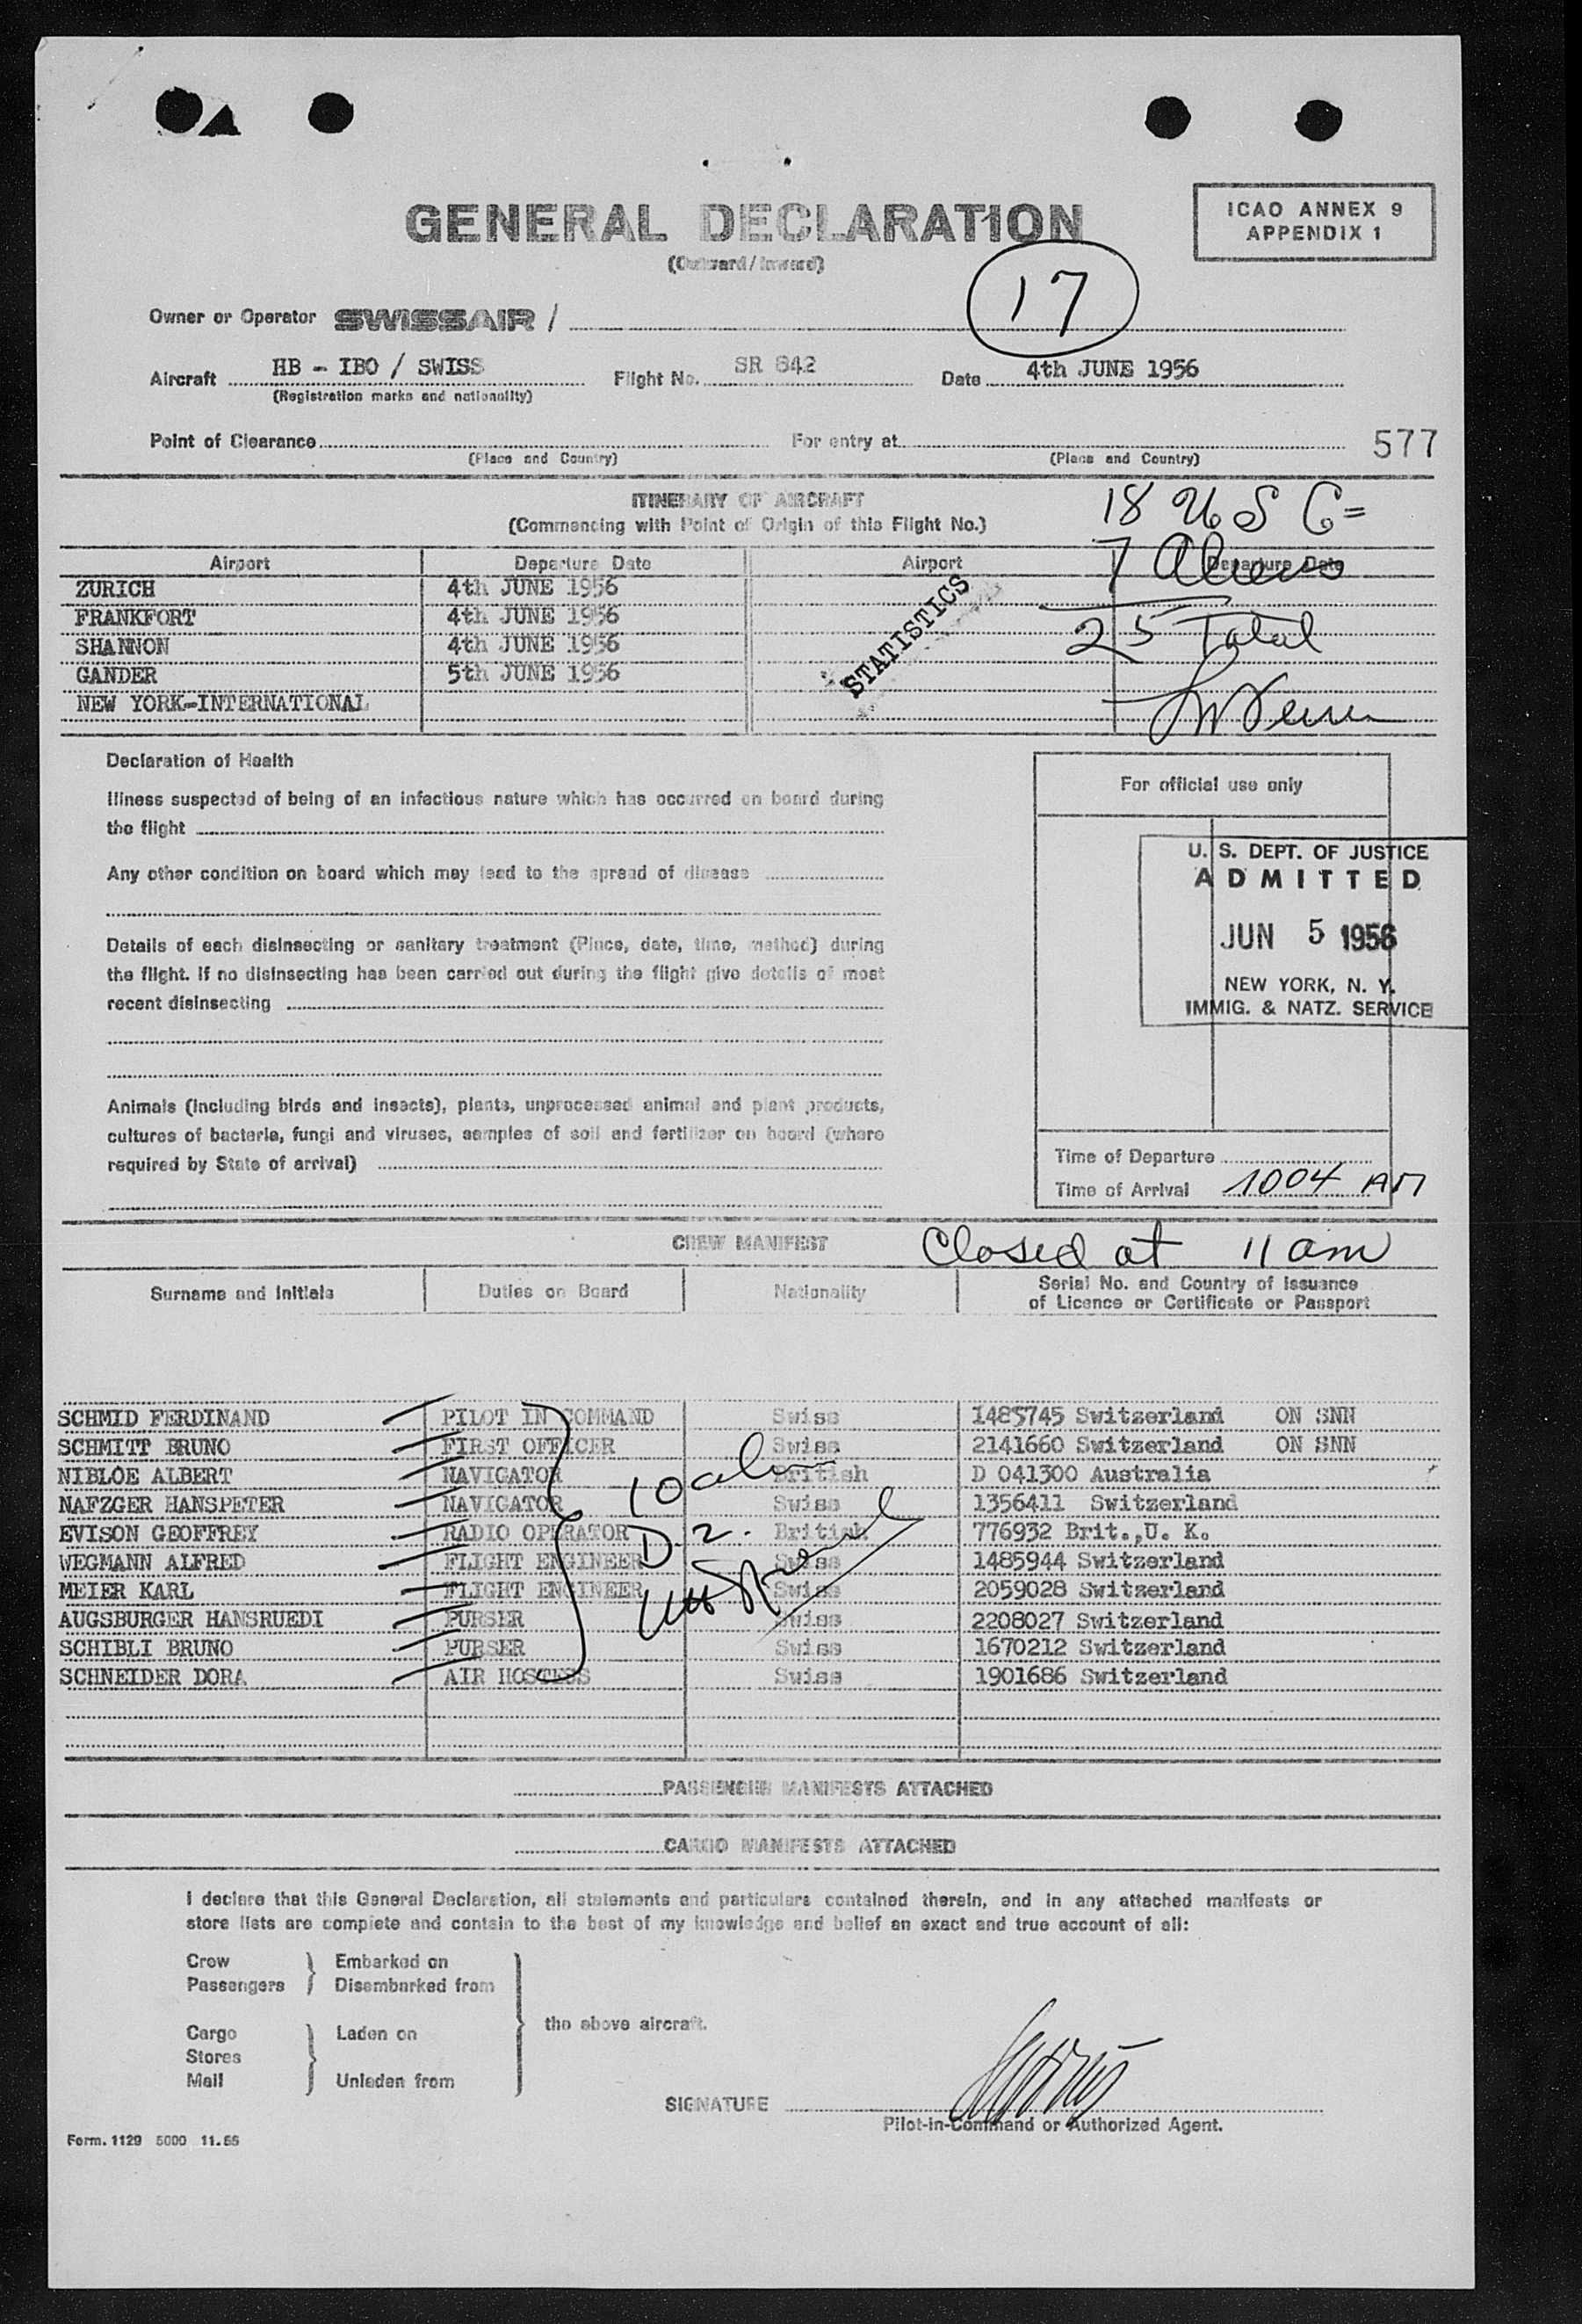 GENERAL DECLARATION
(Outward / Inward)
ICAO ANNEX 9
APPENDIX 1
17
Owner or Operator SWISSAIR /
Aircraft HB - IBO / SWISS Flight No. SR 842 Date 4th JUNE 1956
(Registration marks and nationality)
Point of Clearance For entry at 577
(Place and Country) (Place and Country)
ITINERARY OF AIRCRAFT
(Commencing with Point of Origin of this Flight No.)
18 U S C =
7 Aliens
25 Total
Airport Departure Date Airport Departure Date
ZURICH 4th JUNE 1956
FRANKFORT 4th JUNE 1956
SHANNON 4th JUNE 1956
GANDER 5th JUNE 1956
NEW YORK-INTERNATIONAL
STATISTICS
Declaration of Health
Illness suspected of being of an infectious nature which has occurred on board during
the flight
Any other condition on board which may lead to the spread of disease
Details of each disinsecting or sanitary treatment (Place, date, time, method) during
the flight. If no disinsecting has been carried out during the flight give details of most
recent disinsecting
Animals (including birds and insects), plants, unprocessed animal and plant products,
cultures of bacteria, fungi and viruses, samples of soil and fertilizer on board (where
required by State of arrival)
For official use only
U. S. DEPT. OF JUSTICE
ADMITTED
JUN 5 1956
NEW YORK, N. Y.
IMMIG. & NATZ. SERVICE
Time of Departure
Time of Arrival 1004 AM
CREW MANIFEST Closed at 11 am
Surname and Initials Duties on Board Nationality Serial No. and Country of Issuance
of Licence or Certificate or Passport
SCHMID FERDINAND PILOT IN COMMAND Swiss 1485745 Switzerland ON SNN
SCHMITT BRUNO FIRST OFFICER Swiss 2141660 Switzerland ON SNN
NIBLOE ALBERT NAVIGATOR British D 041300 Australia
NAFZGER HANSPETER NAVIGATOR Swiss 1356411 Switzerland
EVISON GEOFFREY RADIO OPERATOR British 776932 Brit.,U. K.
WEGMANN ALFRED FLIGHT ENGINEER Swiss 1485944 Switzerland
MEIER KARL FLIGHT ENGINEER Swiss 2059028 Switzerland
AUGSBURGER HANSRUEDI PURSER Swiss 2208027 Switzerland
SCHIBLI BRUNO PURSER Swiss 1670212 Switzerland
SCHNEIDER DORA AIR HOSTESS Swiss 1901686 Switzerland
10
D-2.
PASSENGER MANIFESTS ATTACHED
CARGO MANIFESTS ATTACHED
I declare that this General Declaration, all statements and particulars contained therein, and in any attached manifests or
store lists are complete and contain to the best of my knowledge and belief an exact and true account of all:
Crew Embarked on
Passengers Disembarked from
the above aircraft.
Cargo Laden on
Stores
Mail Unladen from
SIGNATURE
Pilot-in-Command or Authorized Agent.
Form. 1129 5000 11.55